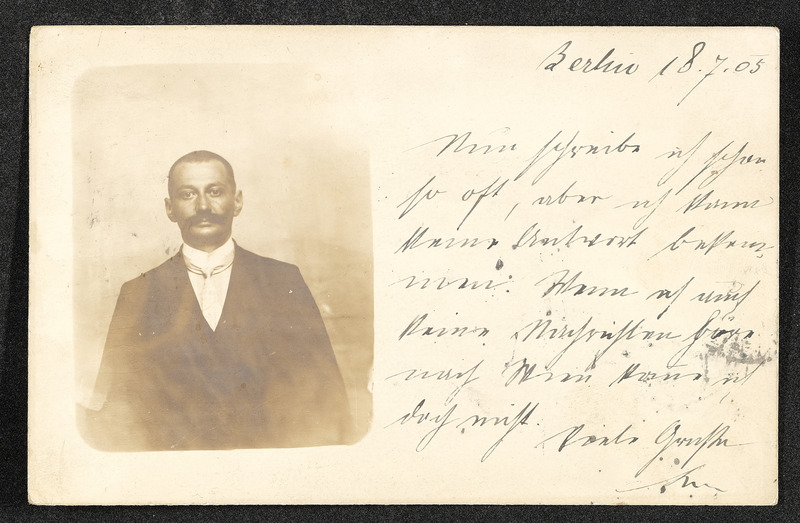 Berlin 18.7.05
Nun schreibe ich schon
so oft, aber ich kann
keine Antwort bekom-
men. Wenn ich auch
keine Nachrichten höre
nach Wien kann ich
doch nicht.
Viele Grüße